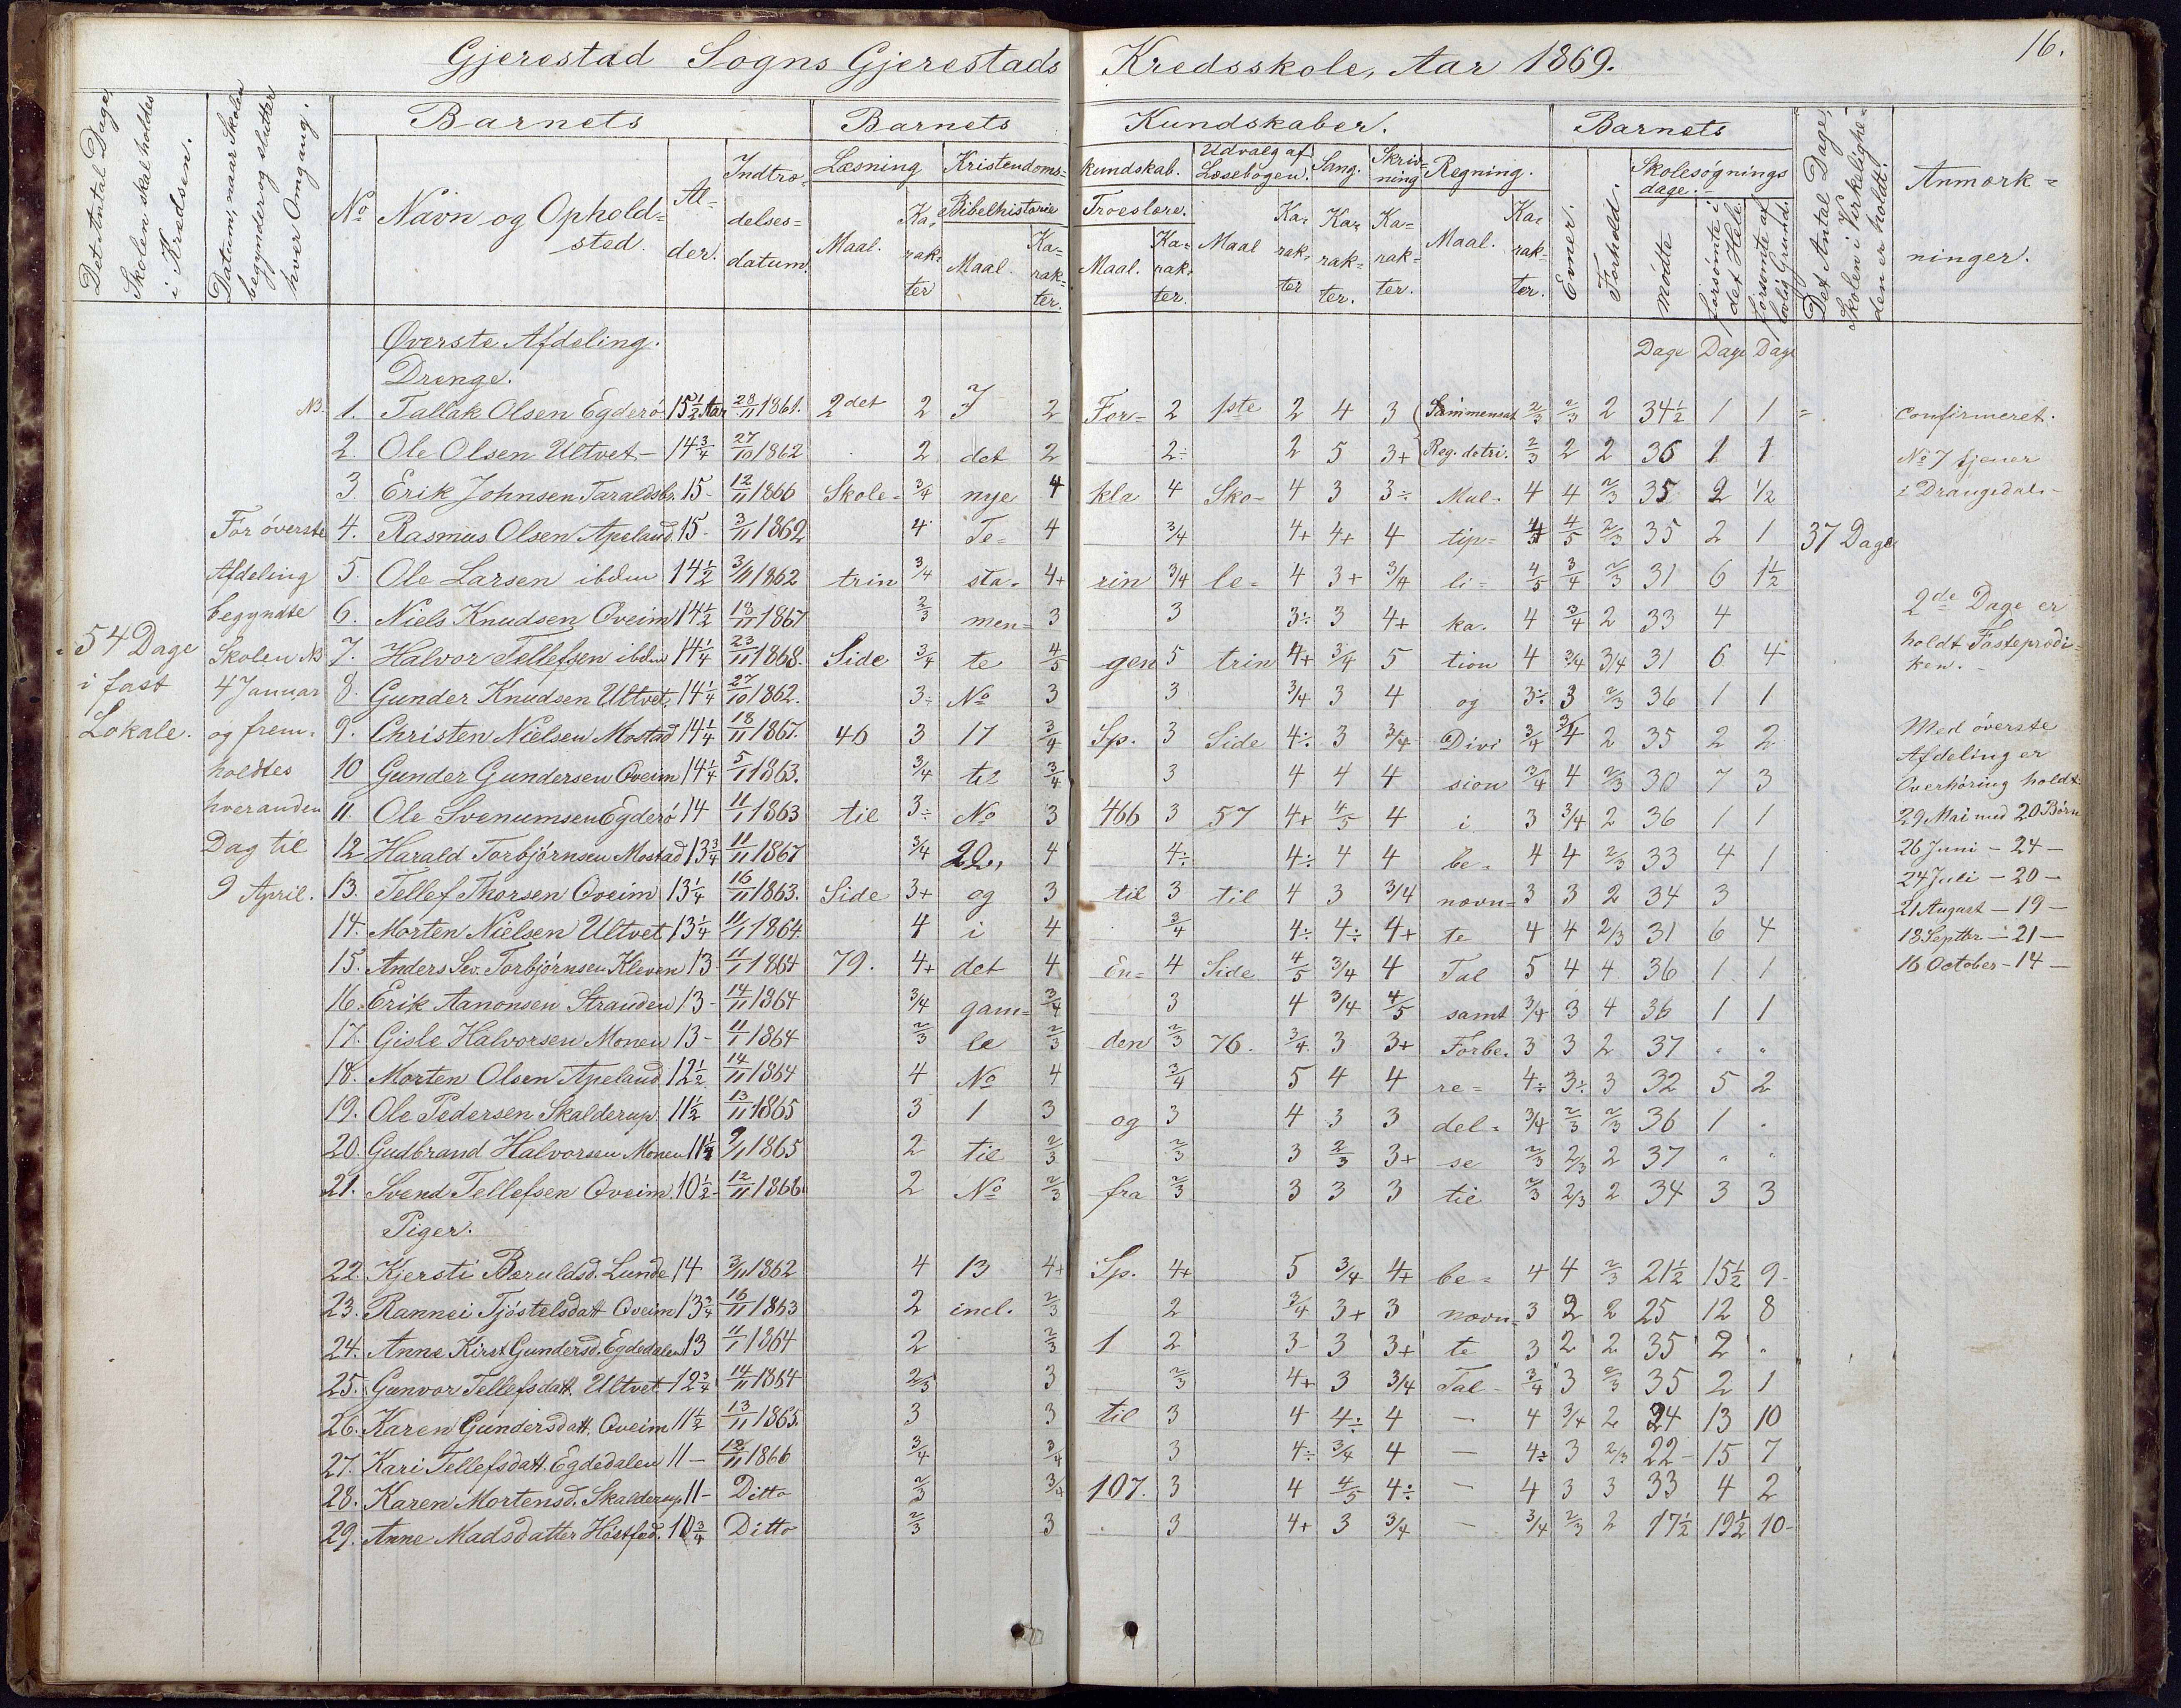 Gjerestad Sogns Gjerestads Kredsskole, Aar 1869.
16.
Det Antal Dage, Skolen skal holdtes i Kredsen.
Datum, naar Skolen begynder og slutter hver Omgang.
Barnets
Barnets Kundskaber.
Barnets
Det Antal Dage, Skolen i Virkelighe= den er holdt.
Anmærk= ninger.
No Navn og Ophold= sted. Al= der. Indtræ= delses= datum.
Læsning Kristendoms= kundskab. Udvalg af Læsebogen. Sang. Skriv= ning Regning.
Maal. Ka= rak= ter Bibelhistorie Maal. Ka= rak= ter. Troeslære. Maal. Ka= rak= ter. Maal Ka= rak= ter Ka= rak= ter. Ka= rak= ter. Maal. Ka= rak= ter.
Evner. Forhold. Skolesøgnings dage. mødte forsømte i det Hele forsømte af lovlig Grund.
Øverste Afdeling. Dage Dage Dage
Drenge.
NB. 1. Tallak Olsen Egderö 15 1/2 Aar 28/11 1861. 2det 2 I 2 For= 2 1ste 2 4 3 Sammensat 2/3 2/3 2 34 1/2 1 1 = confirmeret.
2. Ole Olsen Ultvet 14 3/4 27/10 1862 2 det 2 2÷ 2 5 3+ Reg. detri. 2/3 2 2 36 1 1 No 7 tjener
3. Erik Johnsen Taraldsb. 15 - 12/11 1866 Skole= 3/4 nye 4 kla 4 Sko= 4 3 3÷ Mul= 4 4 2/3 35 2 1/2 i Drangedal. -
For överste 4. Rasmus Olsen Apeland 15 - 3/11 1862 4 Te= 4 3/4 4+ 4+ 4 tip= 4 4/5 2/3 35 2 1 37 Dage
Afdeling 5. Ole Larsen ibdm 14 1/2 3/11 1862 trin 3/4 sta= 4+ rin 3/4 le= 4 3+ 3/4 li= 4/5 3/4 2/3 31 6 1 1/2
begyndte 6. Niels Knudsen Oveim 14 1/2 18/11 1867 2/3 men= 3 3 3÷ 3 4+ ka. 4 3/4 2 33 4 2de Dage er
54 Dage Skolen NB 7. Halvor Tellefsen ibdm 14 1/4 23/11 1868. Side 3/4 te 4/5 gen 5 trin 4+ 3/4 5 tion 4 3/4 3/4 31 6 4 holdt Fasteprædi= ken. -
i fast 4 Januar 8. Gunder Knudsen Ultvet 14 1/4 27/10 1862. 3÷ No 3 3 3/4 3 4 og 3÷ 3 2/3 36 1 1
Lokale. og frem= 9. Christen Nielsen Mostad 14 1/4 18/11 1867. 46 3 17 3/4 Sp. 3 Side 4÷ 3 3/4 Divi 3/4 3/4 2 35 2 2 Med överste
holdtes 10 Gunder Gundersen Oveim 14 1/4 5/1 1863. 3/4 til 3/4 3 4 4 4 sion 3/4 4 2/3 30 7 3 Afdeling er Overhøring holdt
hveranden 11. Ole Svenumsen Egderö 14 11/1 1863 til 3÷ No 3 466 3 57 4+ 4/5 4 i 3 3/4 2 36 1 1 29 Mai med 20 Börn
Dag til 12 Harald Torbjörnsen Mostad 13 3/4 11/11 1867 3/4 22, 4 4÷ 4÷ 4 4 be= 4 4 2/3 33 4 1 26 Juni - 24 -
9 April. 13. Tellef Thorsen Oveim 13 1/4 16/11 1863. Side 3+ og 3 til 3 til 4 3 3/4 nævn= 3 3 2 34 3 24 Juli - 20 -
14. Morten Nielsen Ultvet 13 1/4 11/1 1864. 4 i 4 3/4 4÷ 4÷ 4+ te 4 4 2/3 31 6 4 21 August - 19 -
15. Anders Sev. Torbjörnsen Kleven 13 11/1 1864 79. 4+ det 4 En= 4 Side 4/5 3/4 4 Tal 5 4 4 36 1 1 18 Septbr. - 21 -
16. Erik Aanonsen Stranden 13 - 14/11 1864 3/4 gam= 3/4 3 4 3/4 4/5 samt 3/4 3 4 36 1 1 16 October - 14 -
17. Gisle Halvorsen Monen 13 - 11/1 1864 2/3 le 2/3 den 2/3 76. 3/4 3 3+ Forbe= 3 3 2 37 " "
18. Morten Olsen Apeland 12 1/2 14/11 1864 4 No 4 3/4 5 4 4 re= 4÷ 3÷ 3 32 5 2
19. Ole Pedersen Skalderup 11 1/2 13/11 1865 3 1 3 og 3 4 3 3 del= 3/4 2/3 2/3 36 1 .
20. Gudbrand Halvorsen Monen 11 1/2 9/1 1865 2 til 2/3 2/3 3 2/3 3+ se 2/3 2/3 2 37 " "
21. Svend Tellefsen Oveim 10 1/2 - 12/11 1866 2 No 2/3 fra 2/3 3 3 3 til 2/3 2/3 2 34 3 3
Piger.
22. Kjersti Bæruldsd. Lunde 14 3/11 1862 4 13 4+ Sp. 4+ 5 3/4 4+ be= 4 4 2/3 21 1/2 15 1/2 9 -
23. Rannei Tjöstelsdatt Oveim 13 3/4 16/11 1863 2 incl. 2/3 2 3/4 3+ 3 nævn= 3 2 2 25 12 8
24. Anne Kirst. Gundersd. Egdedalen 13 11/1 1864 2 2/3 1 2 3- 3 3+ te 3 2 2 35 2 .
25. Gunvor Tellefsdatt. Ultvet 12 3/4 14/11 1864 2/3 3 2/3 4+ 3 3/4 Tal - 3/4 3 2/3 35 2 1
26. Karen Gundersdatt. Oveim 11 1/2 13/11 1865. 3 3 til 3 4 4÷ 4 - 4 3/4 2 24 13 10
27. Kari Tellefsdatt. Egdedalen 11 - 12/11 1866 3/4 3/4 3 4÷ 3/4 4 - 4÷ 3 2/3 22 - 15 7
28. Karen Mortensd. Skalderup 11 - Ditto 2/3 3/4 107. 3 4 4/5 4÷ - 4 3 3 33 4 2
29. Anne Madsdatter Höstfed. 10 3/4 Ditto 2/3 3 3 4+ 3 3/4 - 3/4 2/3 2 17 1/2 19 1/2 10 -